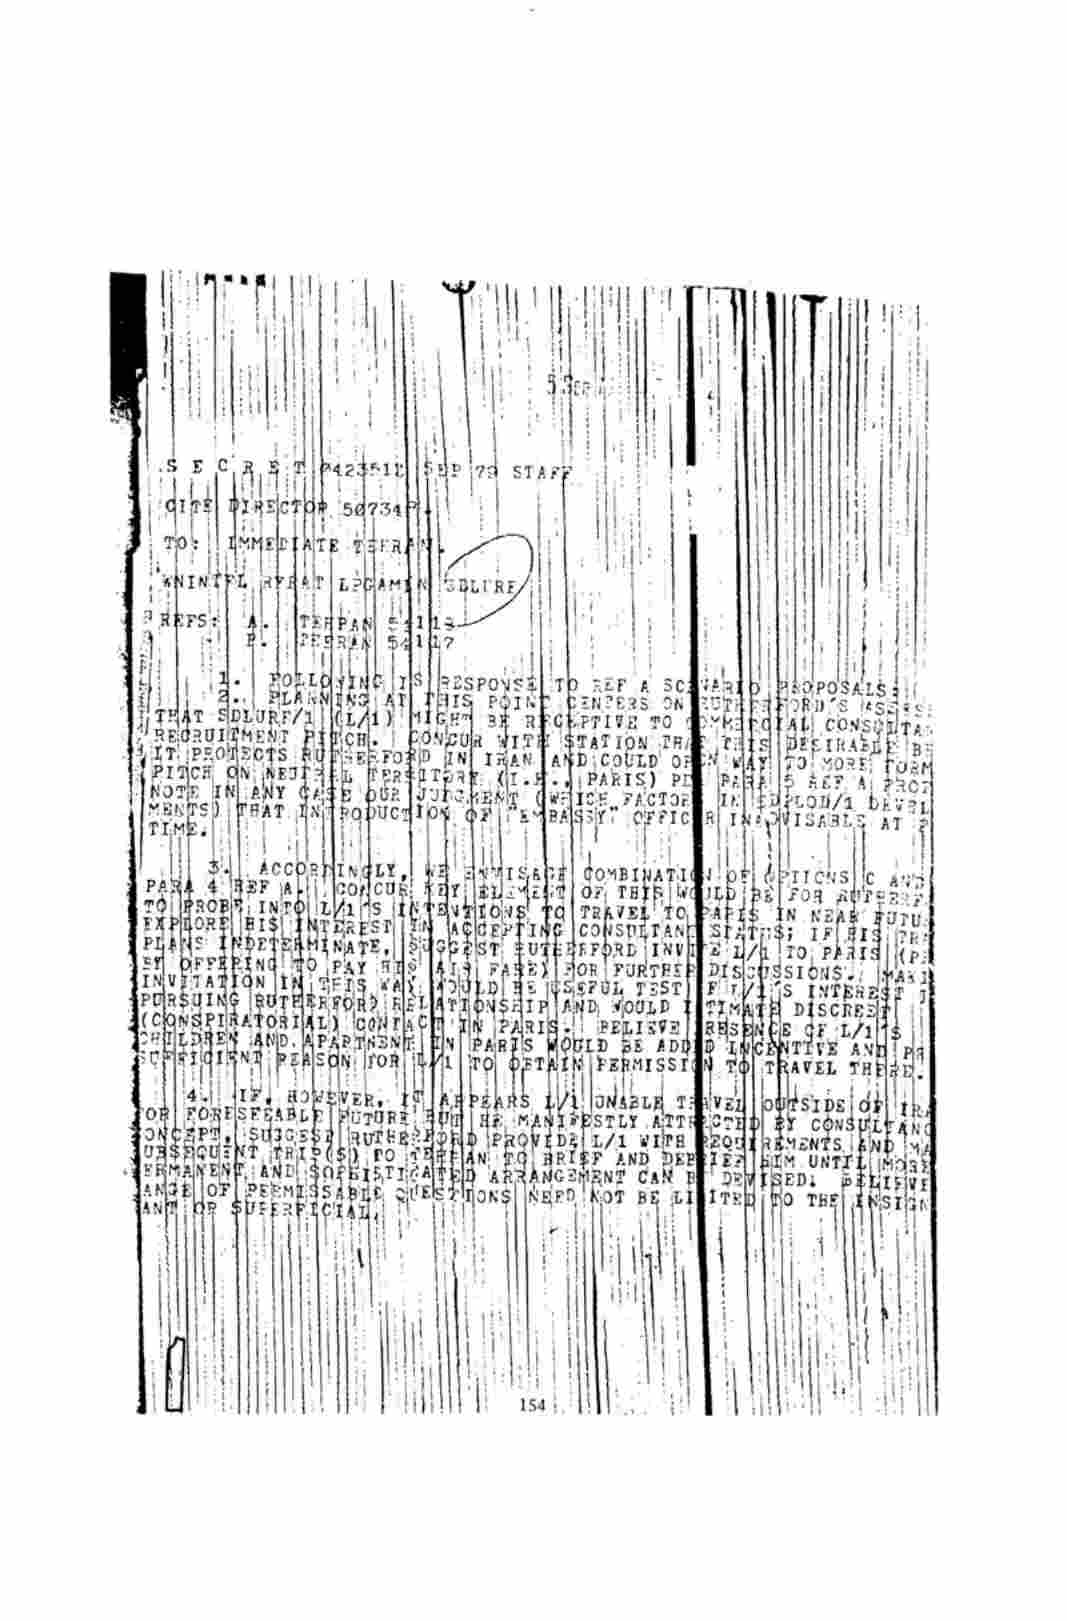 5 SEP
S E C R E T 042351Z SEP 79 STAFF
CITE DIRECTOR 507348.
TO: IMMEDIATE TEHRAN.
WNINTEL RYBAT LPGAMIN SDLURE
REFS: A. TEHRAN 54113
B. TEHRAN 54117
1. FOLLOWING IS RESPONSE TO REF A SCENARIO PROPOSALS:
2. PLANNING AT THIS POINT CENTERS ON RUTHERFORD'S
THAT SDLURE/1 (L/1) MIGHT BE RECEPTIVE TO COMMERCIAL
RECRUITMENT PITCH. CONCUR WITH STATION THAT THIS DESIRABLE
IT PROTECTS RUTHERFORD IN IRAN AND COULD OPEN WAY TO MORE
PITCH ON NEUTRAL TERRITORY (I.E., PARIS) PER PARA 5 REF A
NOTE IN ANY CASE OUR JUDGMENT (WHICH FACTORS IN
MENTS) THAT INTRODUCTION OF "EMBASSY" OFFICER INADVISABLE AT
TIME.
3. ACCORDINGLY, WE ENVISAGE COMBINATION OF OPTIONS C AND
PARA 4 REF A. CONCUR KEY ELEMENT OF THIS WOULD BE FOR
TO PROBE INTO L/1'S INTENTIONS TO TRAVEL TO PARIS IN NEAR
EXPLORE HIS INTEREST IN ACCEPTING CONSULTANT STATUS; IF HIS
PLANS INDETERMINATE, SUGGEST RUTHERFORD INVITE L/1 TO PARIS
BY OFFERING TO PAY HIS AIR FARE) FOR FURTHER DISCUSSIONS.
INVITATION IN THIS WAY WOULD BE USEFUL TEST OF L/1'S INTEREST
PURSUING RUTHERFORD RELATIONSHIP AND WOULD INTIMATE DISCREET
(CONSPIRATORIAL) CONTACT IN PARIS. BELIEVE PRESENCE OF L/1'S
CHILDREN AND APARTMENT IN PARIS WOULD BE ADDED INCENTIVE AND
SUFFICIENT REASON FOR L/1 TO OBTAIN PERMISSION TO TRAVEL THERE.
4. IF, HOWEVER, IT APPEARS L/1 UNABLE TRAVEL OUTSIDE OF
FOR FORESEEABLE FUTURE BUT HE MANIFESTLY ATTRACTED BY
CONCEPT, SUGGEST RUTHERFORD PROVIDE L/1 WITH REQUIREMENTS AND
UBSEQUENT TRIP(S) TO TEHRAN TO BRIEF AND DEBRIEF HIM UNTIL MORE
ERMANENT AND SOPHISTICATED ARRANGEMENT CAN BE DEVISED. BELIEVE
ANGE OF PERMISSABLE QUESTIONS NEED NOT BE LIMITED TO THE INSIGN
ANT OR SUPERFICIAL.
154